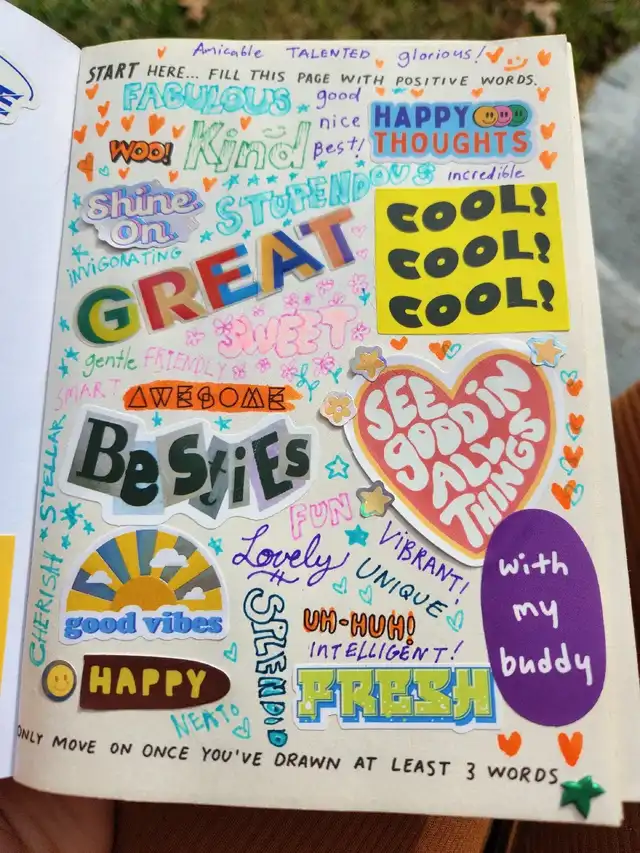 Amicable TALENTED glorious!
START HERE... FILL THIS PAGE WITH POSITIVE WORDS.
FABULOUS
good
nice
Best!
HAPPY
THOUGHTS
WOO!
Kind
incredible
Shine
On
STUPENDOUS
COOL!
COOL!
COOL!
INVIGORATING
GREAT
SWEET
gentle FRIENDLY
SMART
AWESOME
SEE
GOOD IN
ALL
THINGS
Besties
STELLAR
CHERISH
FUN
Lovely
VIBRANT!
UNIQUE
with
my
buddy
good vibes
SPLENDID
UH-HUH!
INTELLIGENT!
HAPPY
FRESH
NEATO
ONLY MOVE ON ONCE YOU'VE DRAWN AT LEAST 3 WORDS